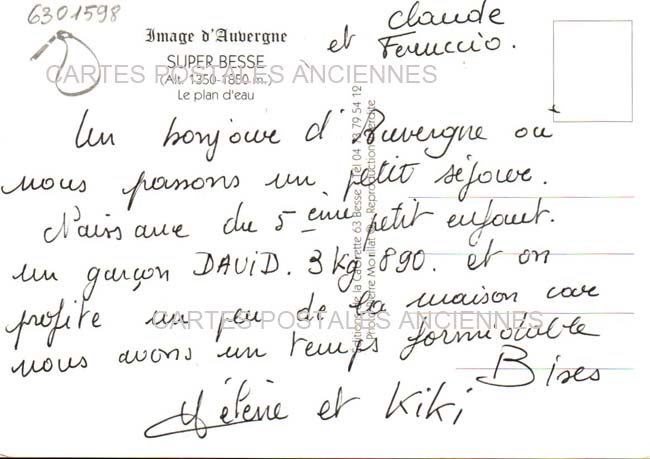 6301598
Image d'Auvergne
SUPER BESSE
(Alt. 1350-1850 m.)
Le plan d'eau
CARTES POSTALES ANCIENNES
Claude
et Feruccio.
Un bonjour d'Auvergne où
nous passons un petit séjour.
Naissance du 5ème petit enfant.
un garçon DAVID. 3kg 890. et on
profite un peu de la maison car
nous avons un temps formidable
Bises
Hélène et Kiki
CARTES POSTALES ANCIENNES
Editions de la Cabourette 63 Besse Tel 04 73 79 54 12
Photo Pierre Monillat © Reproduction interdite